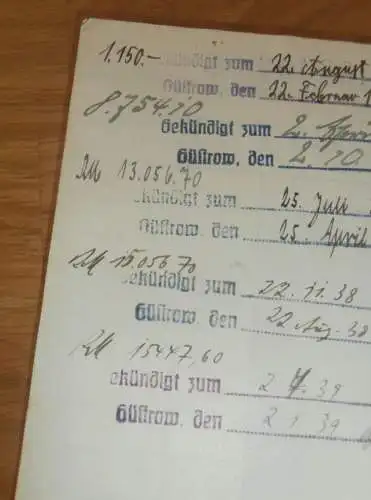 1.150.- kündigt zum 22. August
Güstrow, den 22. Februar 1
8.754.10
Gekündigt zum 2. April
Güstrow, den 2. 10
RM 13.056.70
ekündigt zum 25. Juli
Güstrow, den 25. April
RM 15.056.70
ekündigt zum 22. 11. 38
Güstrow, den 22 Aug. 38
RM 15447,60
ekündigt zum 2 4. 39
Güstrow, den 2 1 39